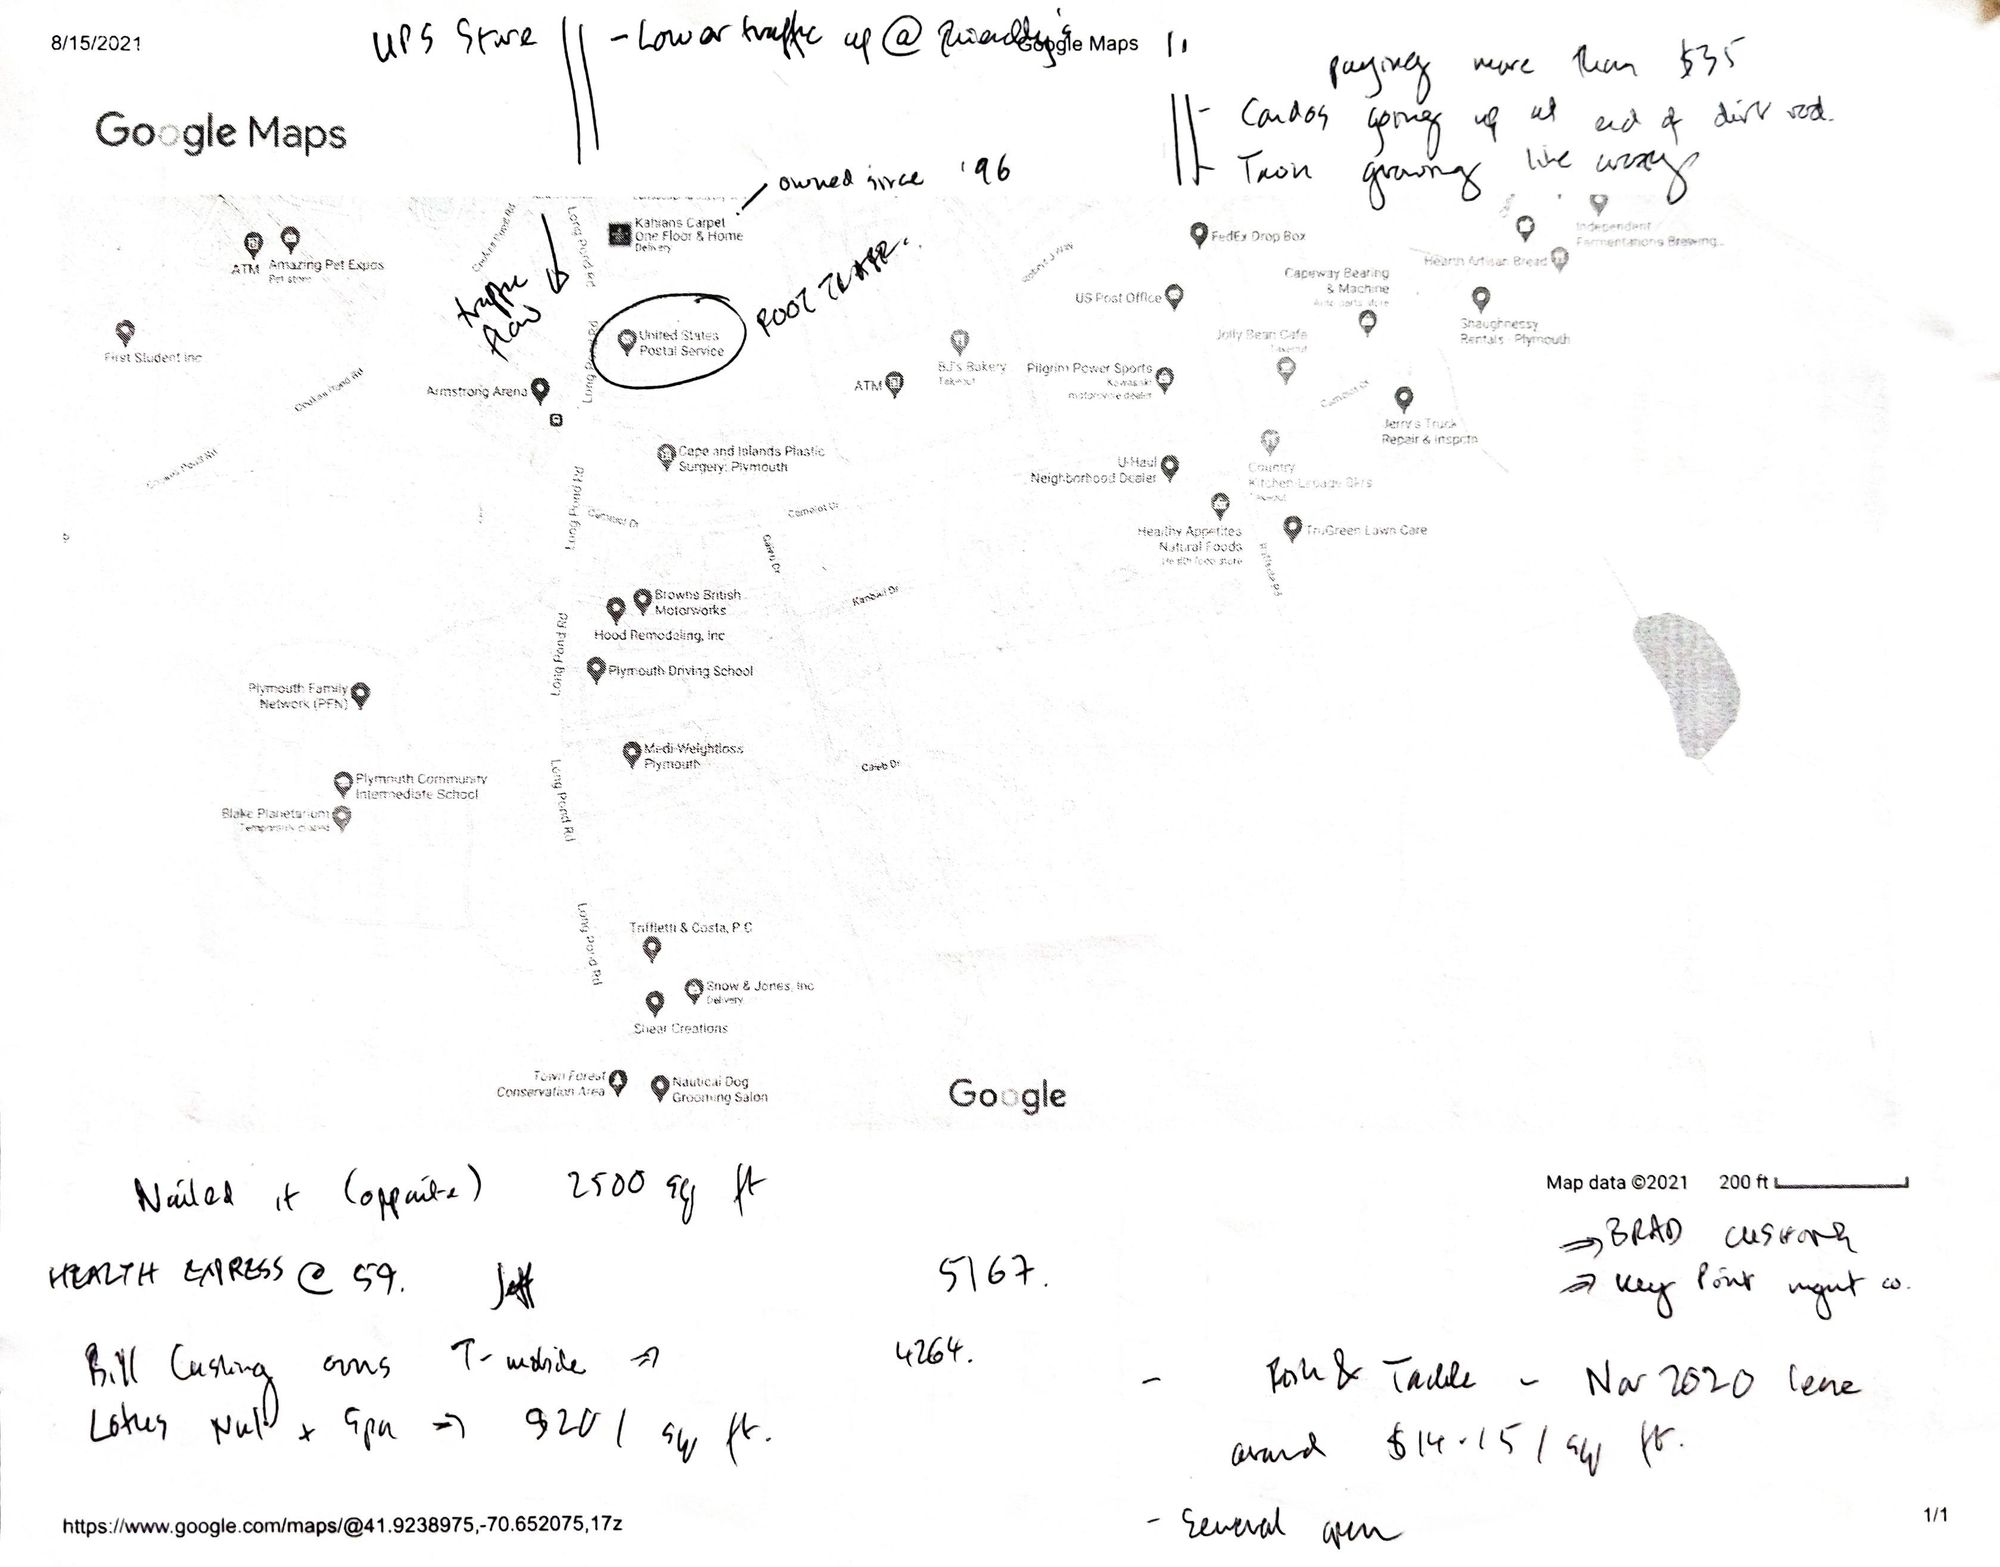 8/15/2021
UPS Store
- Lower traffic up @ Friendly's
Google Maps
paying more than $35
- Condos going up at end of dirt road.
- Town growing like crazy
Google Maps
owned since '96
Kahians Carpet
One Floor & Home
Delivery
traffic
flow
FOOT TRAFF.
Long Pond Rd
ATM
Amazing Pet Expos
Pet store
FedEx Drop Box
Independent
Fermentations Brewing...
Hearth Artisan Bread
Capeway Bearing
& Machine
Auto parts store
US Post Office
Shaughnessy
Rentals - Plymouth
First Student Inc
United States
Postal Service
Long Pond Rd
Jolly Bean Cafe
Takeout
BJ's Bakery
Takeout
Pilgrim Power Sports
Kawasaki
motorcycle dealer
Armstrong Arena
ATM
Camelot Dr
Jerry's Truck
Repair & Inspctn
Cape and Islands Plastic
Surgery: Plymouth
U-Haul
Neighborhood Dealer
Country
Takeout
Long Pond Rd
Camelot Dr
Camelot Dr
Healthy Appetites
Natural Foods
Health food store
TruGreen Lawn Care
Caleb Dr
Browns British
Motorworks
Hood Remodeling, Inc
Long Pond Rd
Plymouth Driving School
Plymouth Family
Network (PFN)
Medi-Weightloss
Plymouth
Caleb Dr
Plymouth Community
Intermediate School
Blake Planetarium
Temporarily closed
Long Pond Rd
Triffletti & Costa, P C
Long Pond Rd
Snow & Jones, Inc
Delivery
Shear Creations
Town Forest
Conservation Area
Nautical Dog
Grooming Salon
Google
Nailed it (opposite) 2500 sq ft
Map data ©2021 200 ft
HEALTH EXPRESS @ 59. Jeff 5167.
⇒ BRAD CUSHING
⇒ Key Point mgmt co.
Bill Cushing owns T-mobile ⇒ 4264.
Lotus Nail + Spa ⇒ $20 / sq ft.
- Fish & Tackle - Nov 2020 lease
around $14-15 / sq ft.
- General open
https://www.google.com/maps/@41.9238975,-70.652075,17z
1/1